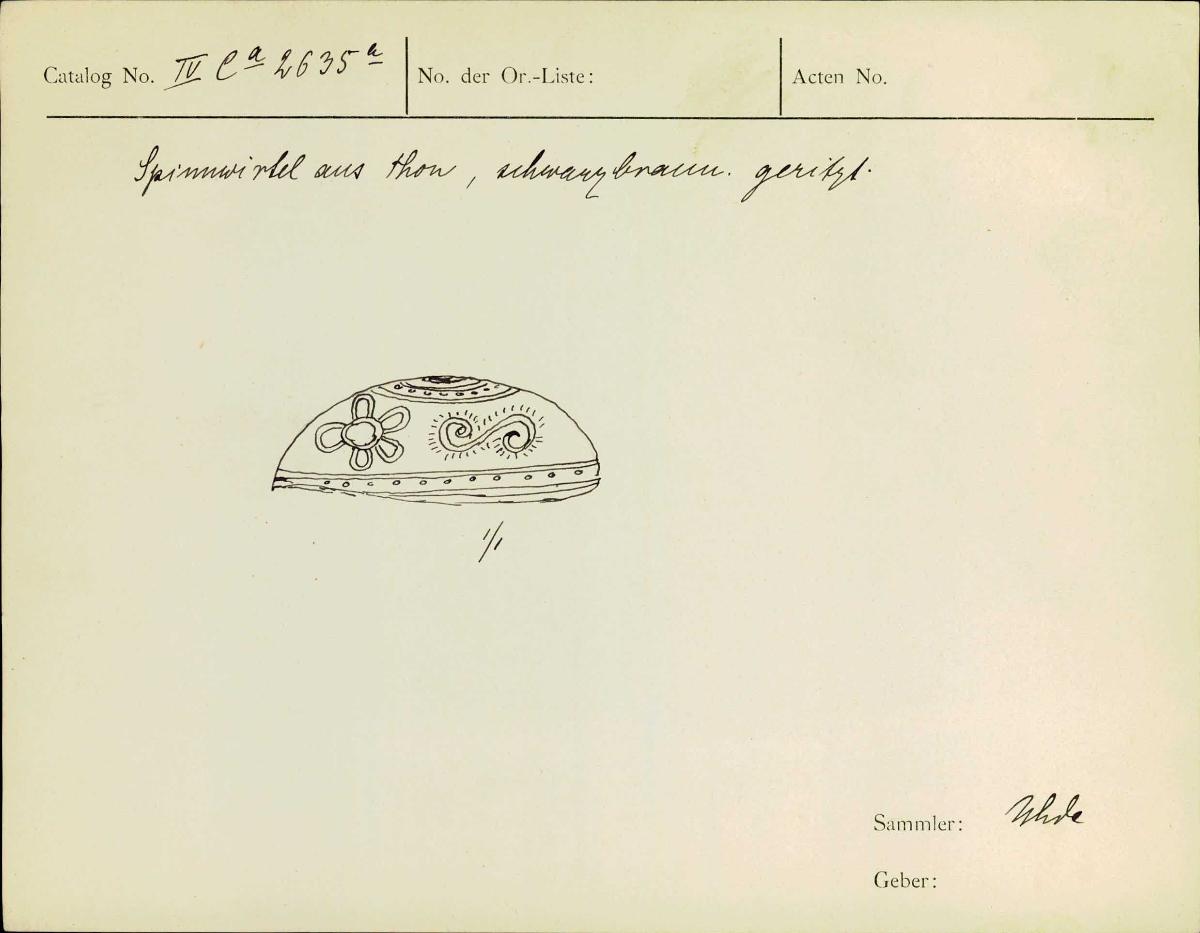 Catalog No. IV Ca 2635a No. der Or.-Liste: Acten No.
Spinnwirtel aus Thon, schwarzbraun. geritzt.
1/1
Sammler: Uhde
Geber: